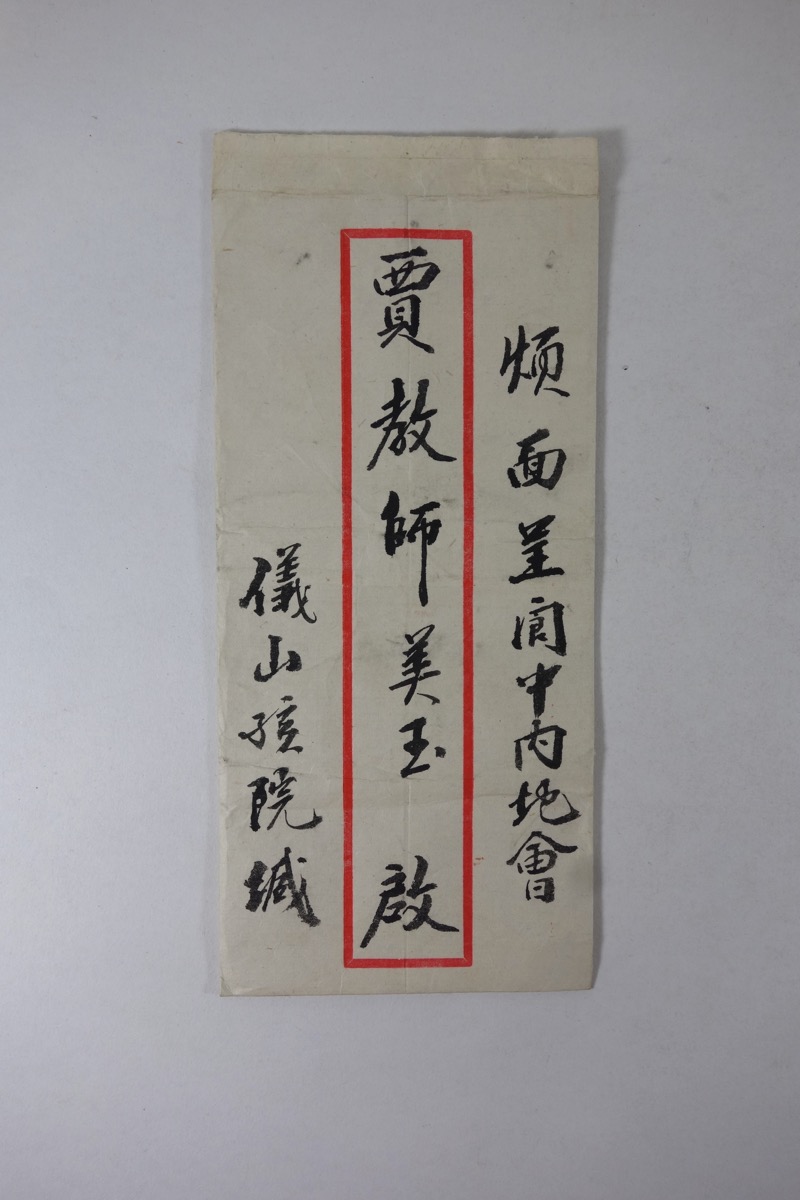 煩面呈閬中內地會
賈教師美玉 啟
儀山孩院緘